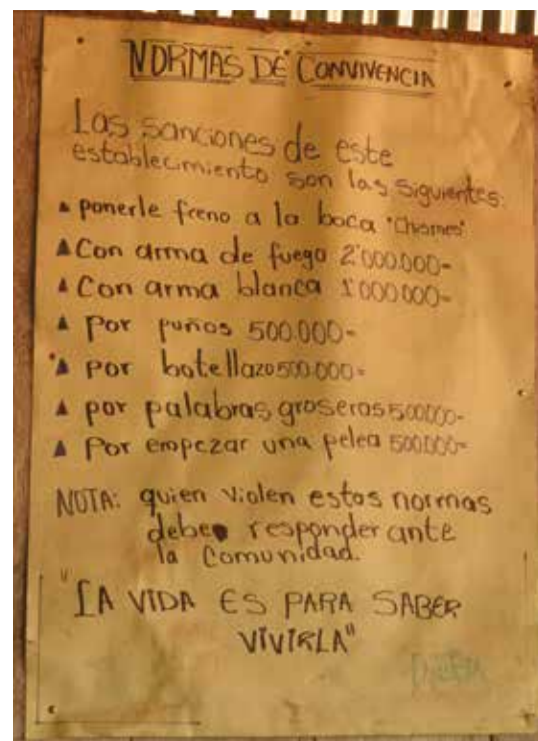 NORMAS DE CONVIVENCIA
Las sanciones de este
establecimiento son las siguientes:
ponerle freno a la boca "Chismes"
Con arma de fuego 2'000.000=
Con arma blanca 1'000.000=
por puños 500.000=
por botellazo 500.000=
por palabras groseras 500.000=
Por empezar una pelea 500.000=
NOTA: quien violen estas normas
debe responder ante
la Comunidad.
"LA VIDA ES PARA SABER
VIVIRLA"